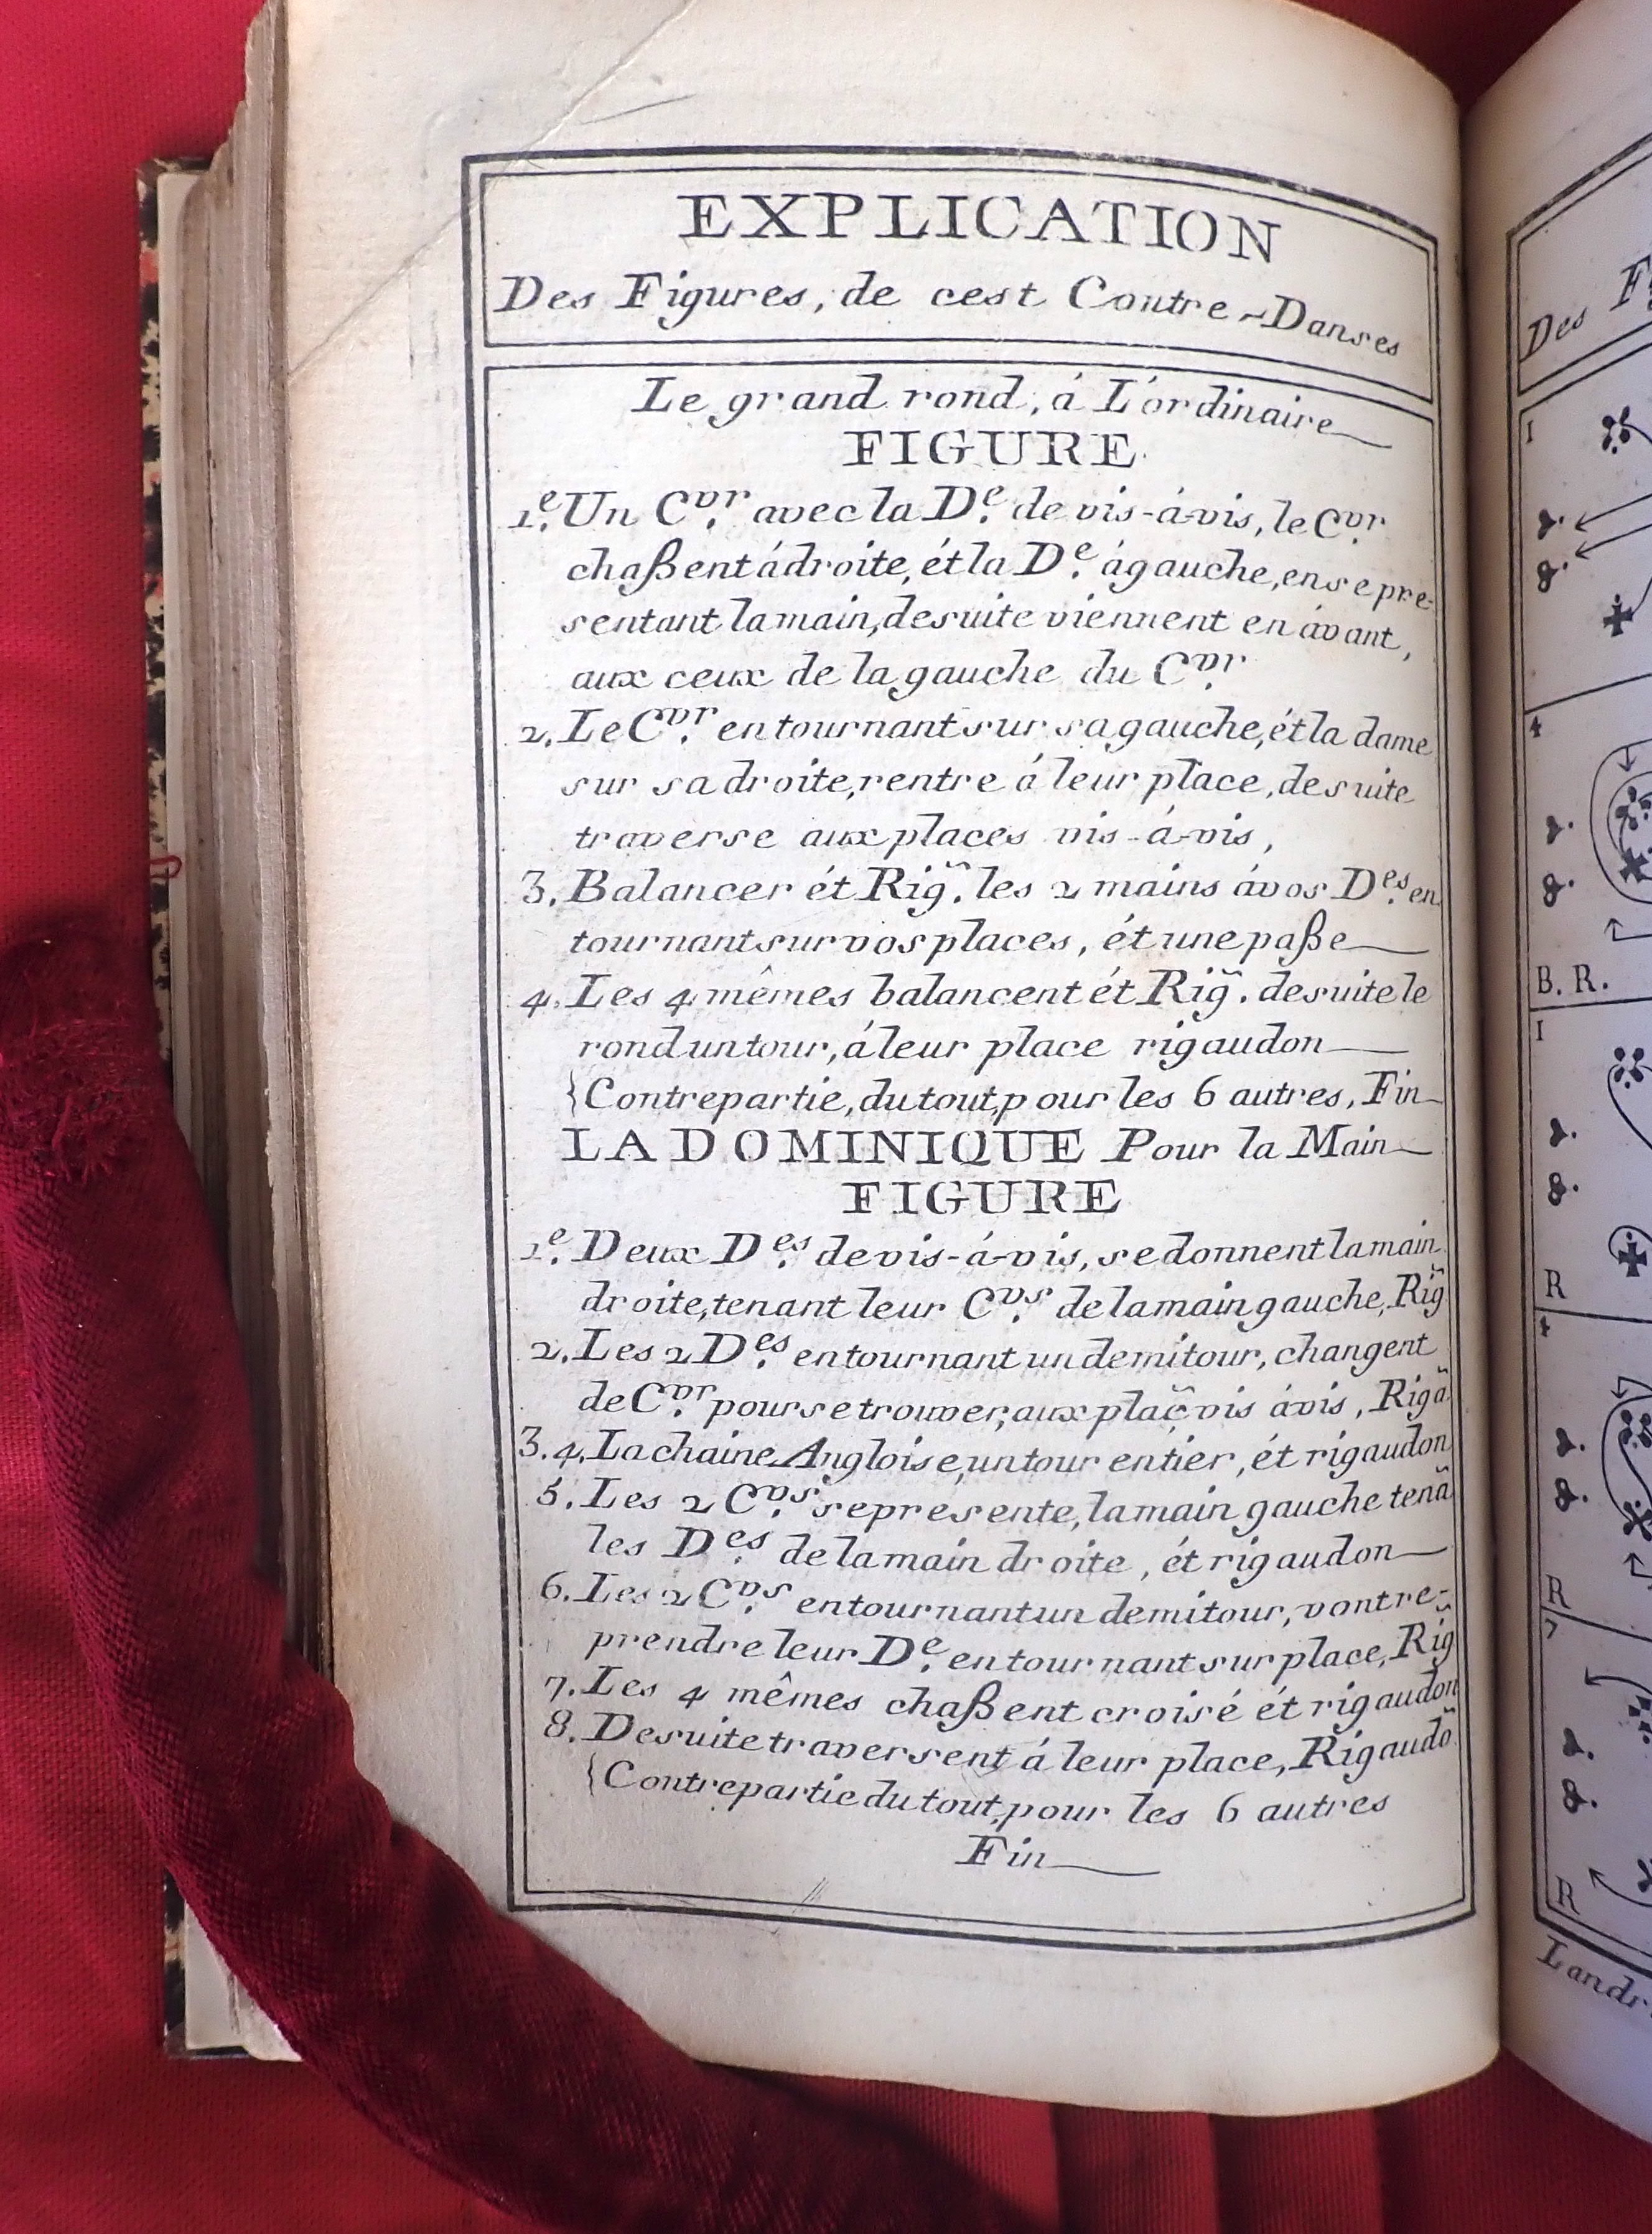 EXPLICATION
Des Figures, de cest Contre-Danses
Le grand rond, á L'ordinaire
FIGURE
1.e Un C.vr avec la D.e de vis-á-vis, le C.vr
chaßent á droite, ét la D.e á gauche, en se pre-
sentant la main, de suite viennent en ávant,
aux ceux de la gauche du C.vr
2. Le C.vr en tournant sur sa gauche, ét la dame
sur sa droite, rentre á leur place, de suite
traverse aux places vis-á-vis,
3. Balancer ét Rig̃. les 2 mains á vos D.es en
tournant sur vos places, ét une paße
4. Les 4 mêmes balancent ét Rig̃. de suite le
rond un tour, á leur place rigaudon
{Contrepartie, du tout, pour les 6 autres, Fin
LA DOMINIQUE Pour la Main
FIGURE
1.e Deux D.es de vis-á-vis, se donnent la main
droite, tenant leur C.vs de la main gauche, Rig̃
2. Les 2 D.es en tournant un demi tour, changent
de C.vr pour se trouver, aux plac̃ vis á vis, Rigã
3.4. La chaine Angloise, un tour entier, ét rigaudon
5. Les 2 C.vs se presente, la main gauche tenã
les D.es de la main droite, ét rigaudon
6. Les 2 C.vs en tournant un demi tour, vont re-
prendre leur D.e en tournant sur place, Rig̃
7. Les 4 mêmes chaßent croisé ét rigaudon
8. De suite traversent á leur place, Rigaudõ
{Contrepartie du tout, pour les 6 autres
Fin
Des
1
4
B. R.
1
R
4
R
7
R